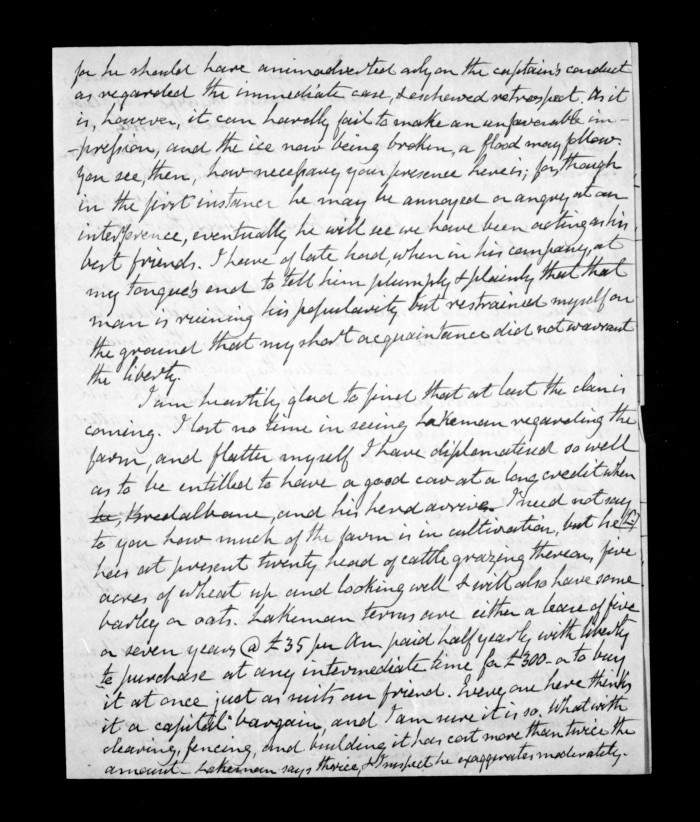 for he should have animadverted only on the captain's conduct
as regarded the immediate case, & eschewed retrospect. As it
is, however, it can hardly fail to make an unfavorable im-
-pression, and the ice now being broken, a flood may follow.
You see, then, how necessary your presence here is; for, though
in the first instance he may be annoyed or angry at our
interference, eventually he will see we have been acting as his
best friends. I have of late had, when in his company, at
my tongue's end to tell him plumply & plainly that that
man is ruining his popularity but restrained myself on
the ground that my short acquaintance did not warrant
the liberty.
I am heartily glad to find that at last the clan is
coming. I lost no time in seeing Lakeman regarding the
farm, and flatter myself I have diplomatised so well
as to be entitled to have a good cow at a long credit when
he, Bredalbane, and his herd arrives. I need not say
to you how much of the farm is in cultivation, but he (L)
has at present twenty head of cattle grazing thereon, five
acres of wheat up and looking well & will also have some
barley or oats. Lakeman terms are either a lease of five
or seven years @ £35 per An paid half yearly with liberty
to purchase at any intermediate time for £300- or to buy
it at once just as suits our friend. Every one here thinks
it a capital bargain, and I am sure it is so. What with
clearing, fencing, and building it has cost more than twice the
amount - Lakeman says thrice, & I suspect he exaggerates moderately.